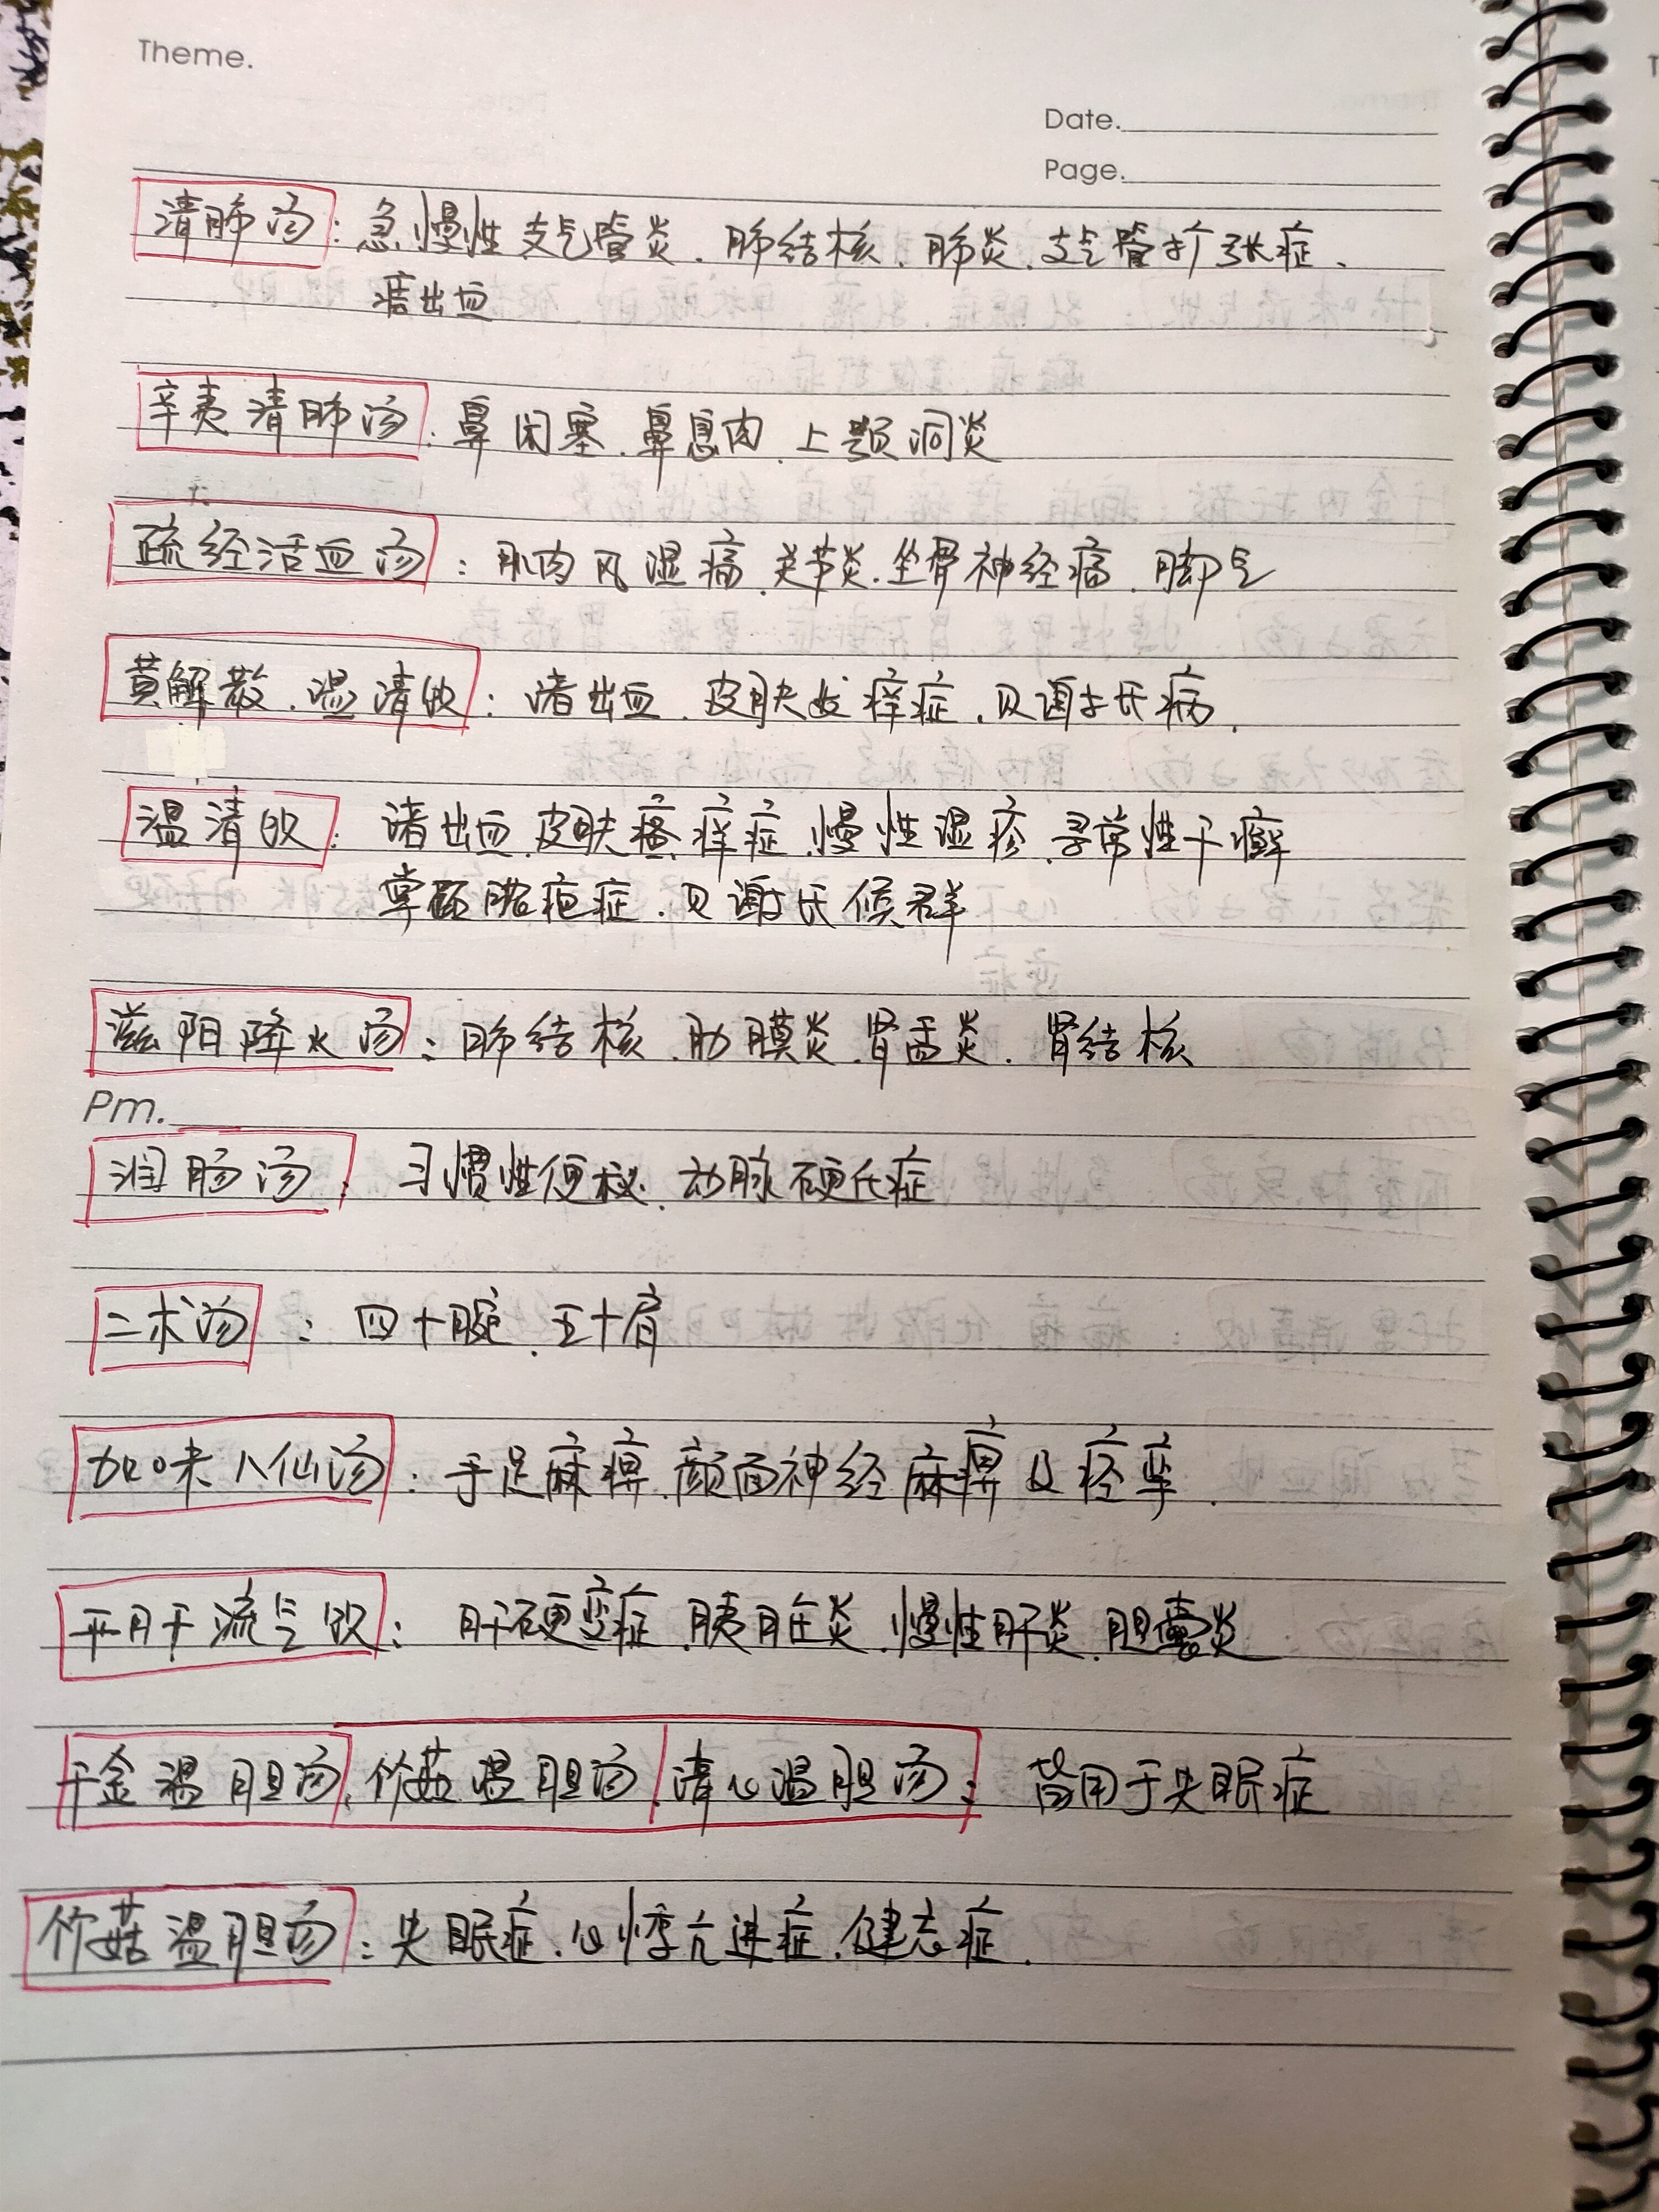 Theme.
Date.
Page.
清肺汤：急慢性支气管炎、肺结核、肺炎、支气管扩张症、
痞出血
辛夷清肺汤：鼻闭塞、鼻息肉、上颚洞炎
疏经活血汤：肌肉风湿痛、关节炎、坐骨神经痛、脚气
黄解散、温清饮：诸出血、皮肤 痒症、贝谢 氏病.
温清饮：诸出血、皮肤瘙痒症、慢性湿疹、寻常性干癣
掌 脓疱症、贝谢 氏候群
滋阳降火汤：肺结核、肋膜炎、肾盂炎、肾结核
Pm.
润肠汤：习惯性便秘、动脉硬化症
二术汤：四十腕、五十肩
加味八仙汤：手足麻痹、颜面神经麻痹及痉挛.
平肝流气饮：肝硬变症、胰脏炎、慢性肝炎、胆囊炎
千金温胆汤、竹菇温胆汤、清心温胆汤：皆用于失眠症
竹菇温胆汤：失眠症、心悸亢进症、健忘症.